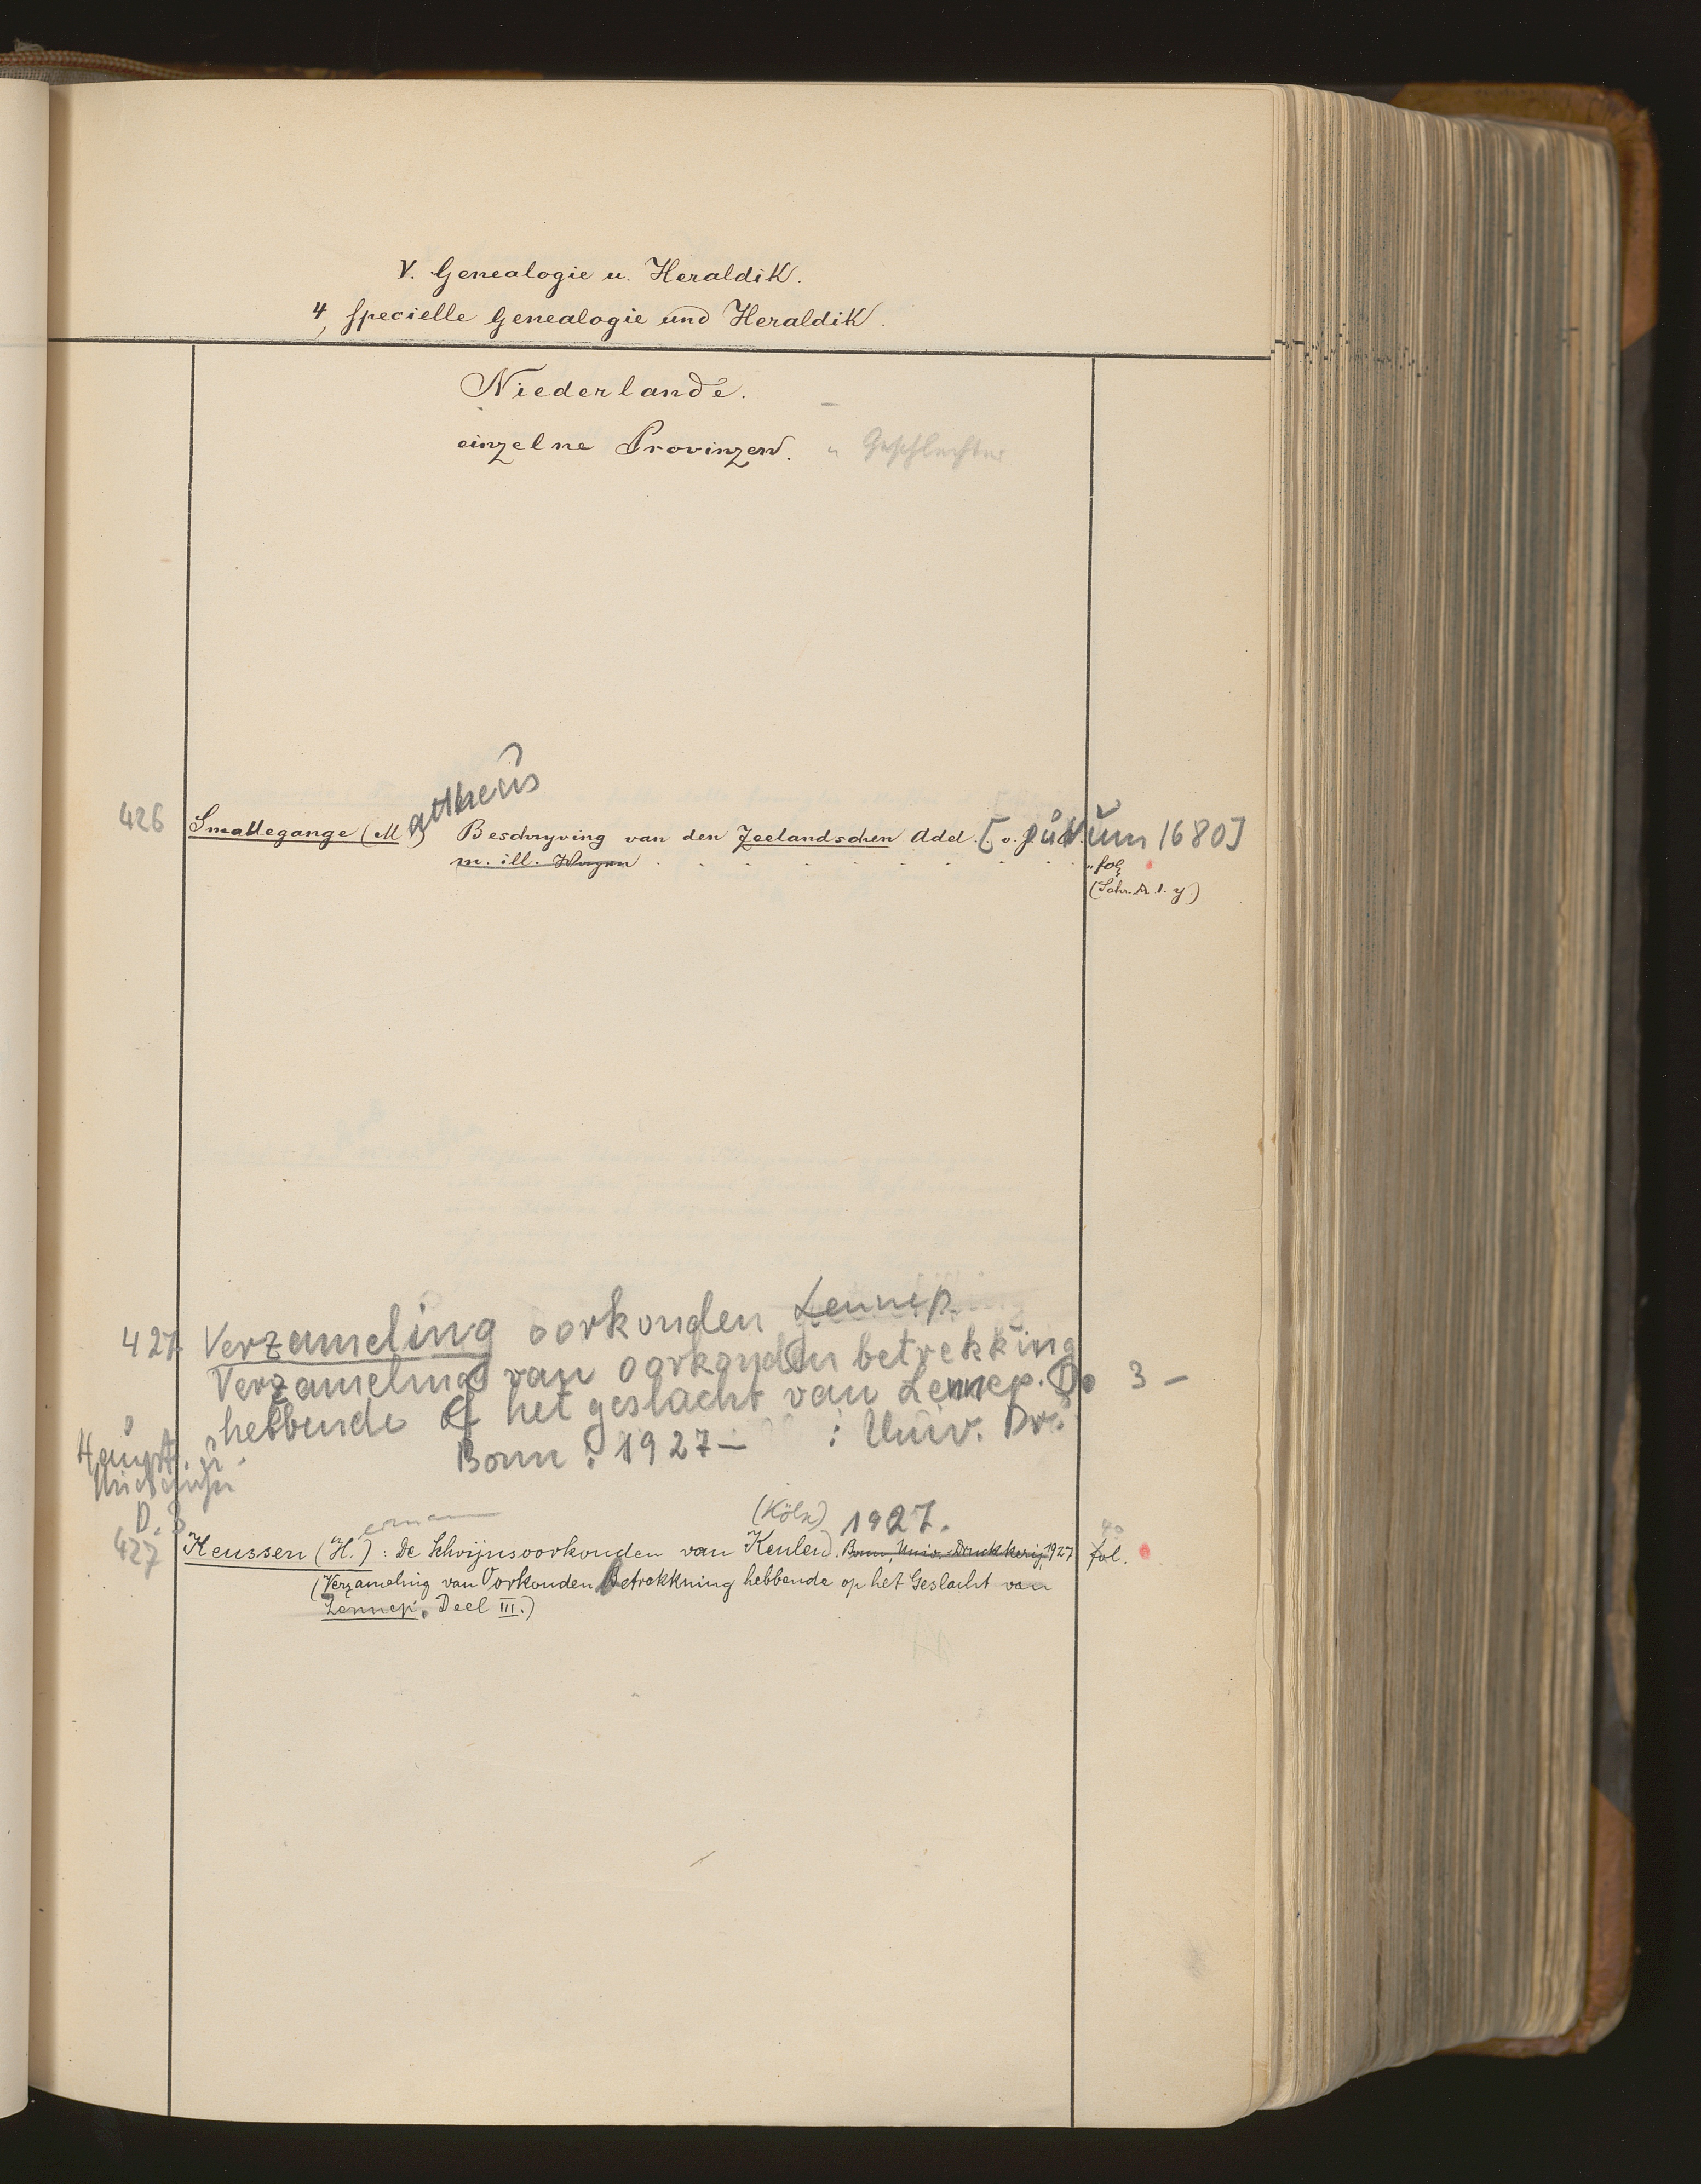 V. Genealogie u. Heraldik.
4, specielle Genealogie und Heraldik.
Niederlande.
einzelne Provinzen. u Geschlechter
426 Smallegange (Mattheus) Beschryving van den Zeelandschen Addel. [um 1680]
m. ill. Wapen
fol
(Schr. A. 1. y.)
427 Verzameling oorkonden Lennep.
Verzameling van oorkonden betrekking
hebbende op het geslacht van Lennep. D. 3 —
Bonn: 1927— : Univ. Dr.
Haupt. u.
D. 3
(Köln) 1927.
427 Keussen (Hermann): De Schrijnsoorkonden van Keulen. Bonn, Univ. Drukkerij, 1927 fol. 4o
(Verzameling van Oorkonden Betrekkning hebbende op het Geslacht van
Lennep, Deel III.)